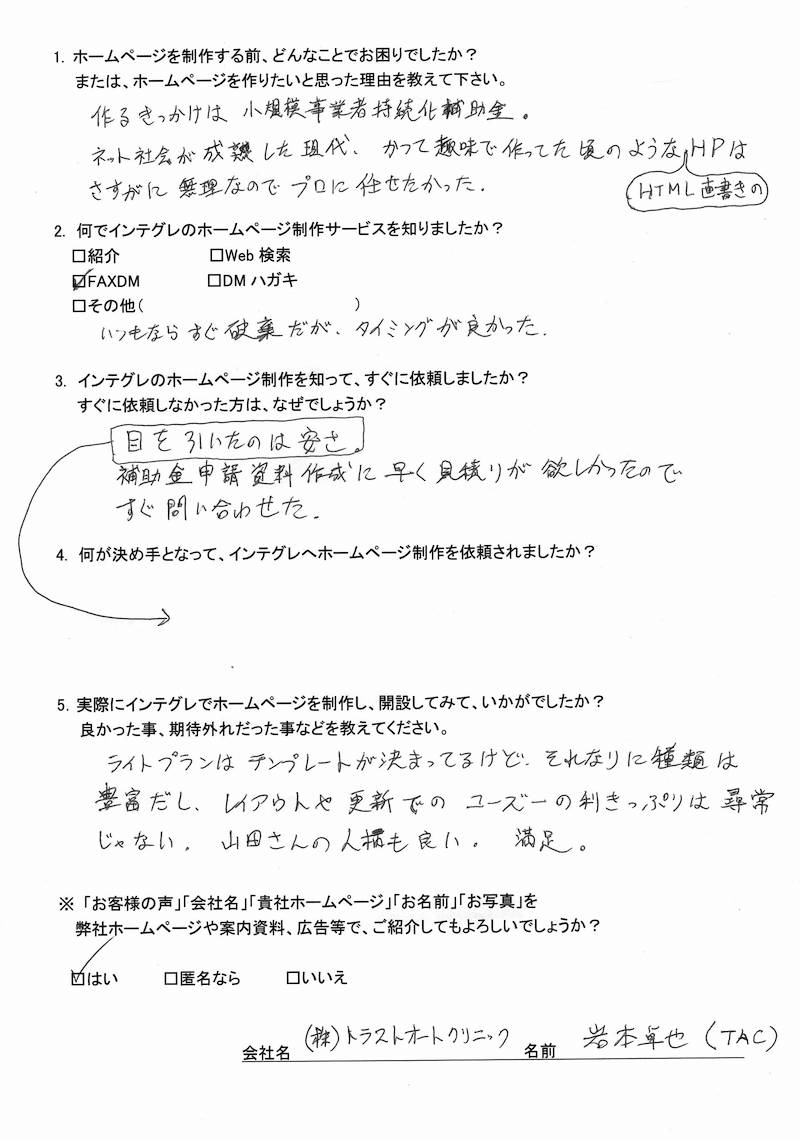 1. ホームページを制作する前、どんなことでお困りでしたか？
または、ホームページを作りたいと思った理由を教えて下さい。
作るきっかけは 小規模事業者持続化補助金。
ネット社会が成熟した現代、かつて趣味で作ってた頃のようなHPは
HTML直書きの
さすがに無理なのでプロに任せたかった。
2. 何でインテグレのホームページ制作サービスを知りましたか？
□紹介 □Web 検索
☑FAXDM □DM ハガキ
□その他( )
いつもならすぐ破棄だが、タイミングが良かった.
3. インテグレのホームページ制作を知って、すぐに依頼しましたか？
すぐに依頼しなかった方は、なぜでしょうか？
目を引いたのは安さ。
補助金申請資料作成に早く見積りが欲しかったので
すぐ問い合わせた.
4. 何が決め手となって、インテグレへホームページ制作を依頼されましたか？
5. 実際にインテグレでホームページを制作し、開設してみて、いかがでしたか？
良かった事、期待外れだった事などを教えてください。
ライトプランはテンプレートが決まってるけど、それなりに種類は
豊富だし、レイアウトや更新でのユーズーの利きっぷりは尋常
じゃない。山田さんの人柄も良い。満足。
※「お客様の声」「会社名」「貴社ホームページ」「お名前」「お写真」を
弊社ホームページや案内資料、広告等で、ご紹介してもよろしいでしょうか？
☑はい □匿名なら □いいえ
会社名 (株)トラストオートクリニック 名前 岩本卓也(TAC)